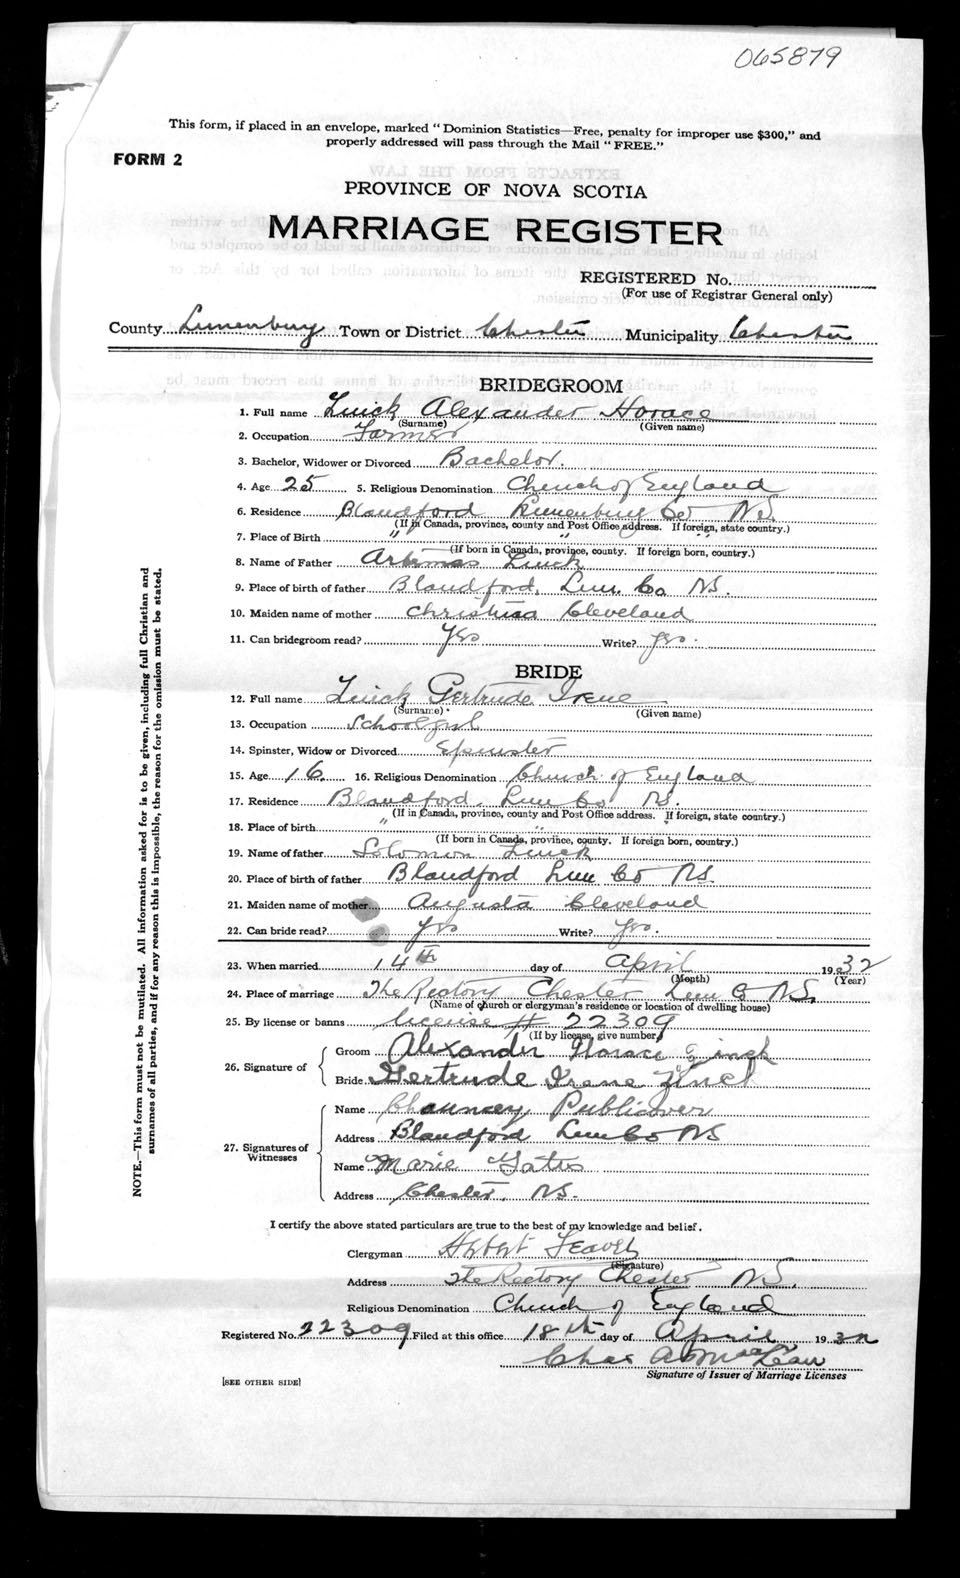 065879
This form, if placed in an envelope, marked "Dominion Statistics—Free, penalty for improper use $300," and
properly addressed will pass through the Mail "FREE."
FORM 2
PROVINCE OF NOVA SCOTIA
MARRIAGE REGISTER
REGISTERED No.
(For use of Registrar General only)
County Lunenburg Town or District Chester Municipality Chester
BRIDEGROOM
1. Full name Zinck Alexander Horace
(Surname) (Given name)
2. Occupation Farmer
3. Bachelor, Widower or Divorced Bachelor.
4. Age 25 5. Religious Denomination Church of England
6. Residence Blandford Lunenburg Co NS.
(If in Canada, province, county and Post Office address. If foreign, state country.)
7. Place of Birth " " "
(If born in Canada, province, county. If foreign born, country.)
8. Name of Father Artemas Zinck
9. Place of birth of father Blandford, Lun. Co NS.
10. Maiden name of mother Christina Cleveland
11. Can bridegroom read? Yes Write? Yes.
BRIDE
12. Full name Zinck Gertrude Irene
(Surname) (Given name)
13. Occupation Schoolgirl
14. Spinster, Widow or Divorced Spinster
15. Age 16 16. Religious Denomination Church of England
17. Residence Blandford. Lun Co NS.
(If in Canada, province, county and Post Office address. If foreign, state country.)
18. Place of birth " " "
(If born in Canada, province, county. If foreign born, country.)
19. Name of father Solomon Zinck
20. Place of birth of father Blandford Lun Co NS.
21. Maiden name of mother Augusta Cleveland
22. Can bride read? Yes Write? Yes.
23. When married 14th day of April 1932
(Month) (Year)
24. Place of marriage The Rectory Chester Lun Co NS.
(Name of church or clergyman's residence or location of dwelling house)
25. By license or banns license # 22309
(If by license, give number)
26. Signature of
Groom Alexander Horace Zinck
Bride Gertrude Irene Zinck
27. Signatures of Witnesses
Name Chauncey Publicover
Address Blandford Lun Co NS
Name Marie Yates
Address Chester, NS.
I certify the above stated particulars are true to the best of my knowledge and belief.
Clergyman
(Signature)
Address The Rectory Chester NS.
Religious Denomination Church of England
Registered No. 22309 Filed at this office 18th day of April 1932
Chas A
Signature of Issuer of Marriage Licenses
[SEE OTHER SIDE]
NOTE.—This form must not be mutilated. All information asked for is to be given, including full Christian and
surnames of all parties, and if for any reason this is impossible, the reason for the omission must be stated.